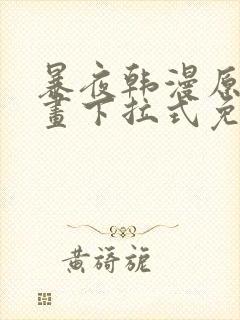 暴夜韩漫原
畫下拉式免
黄旖旎